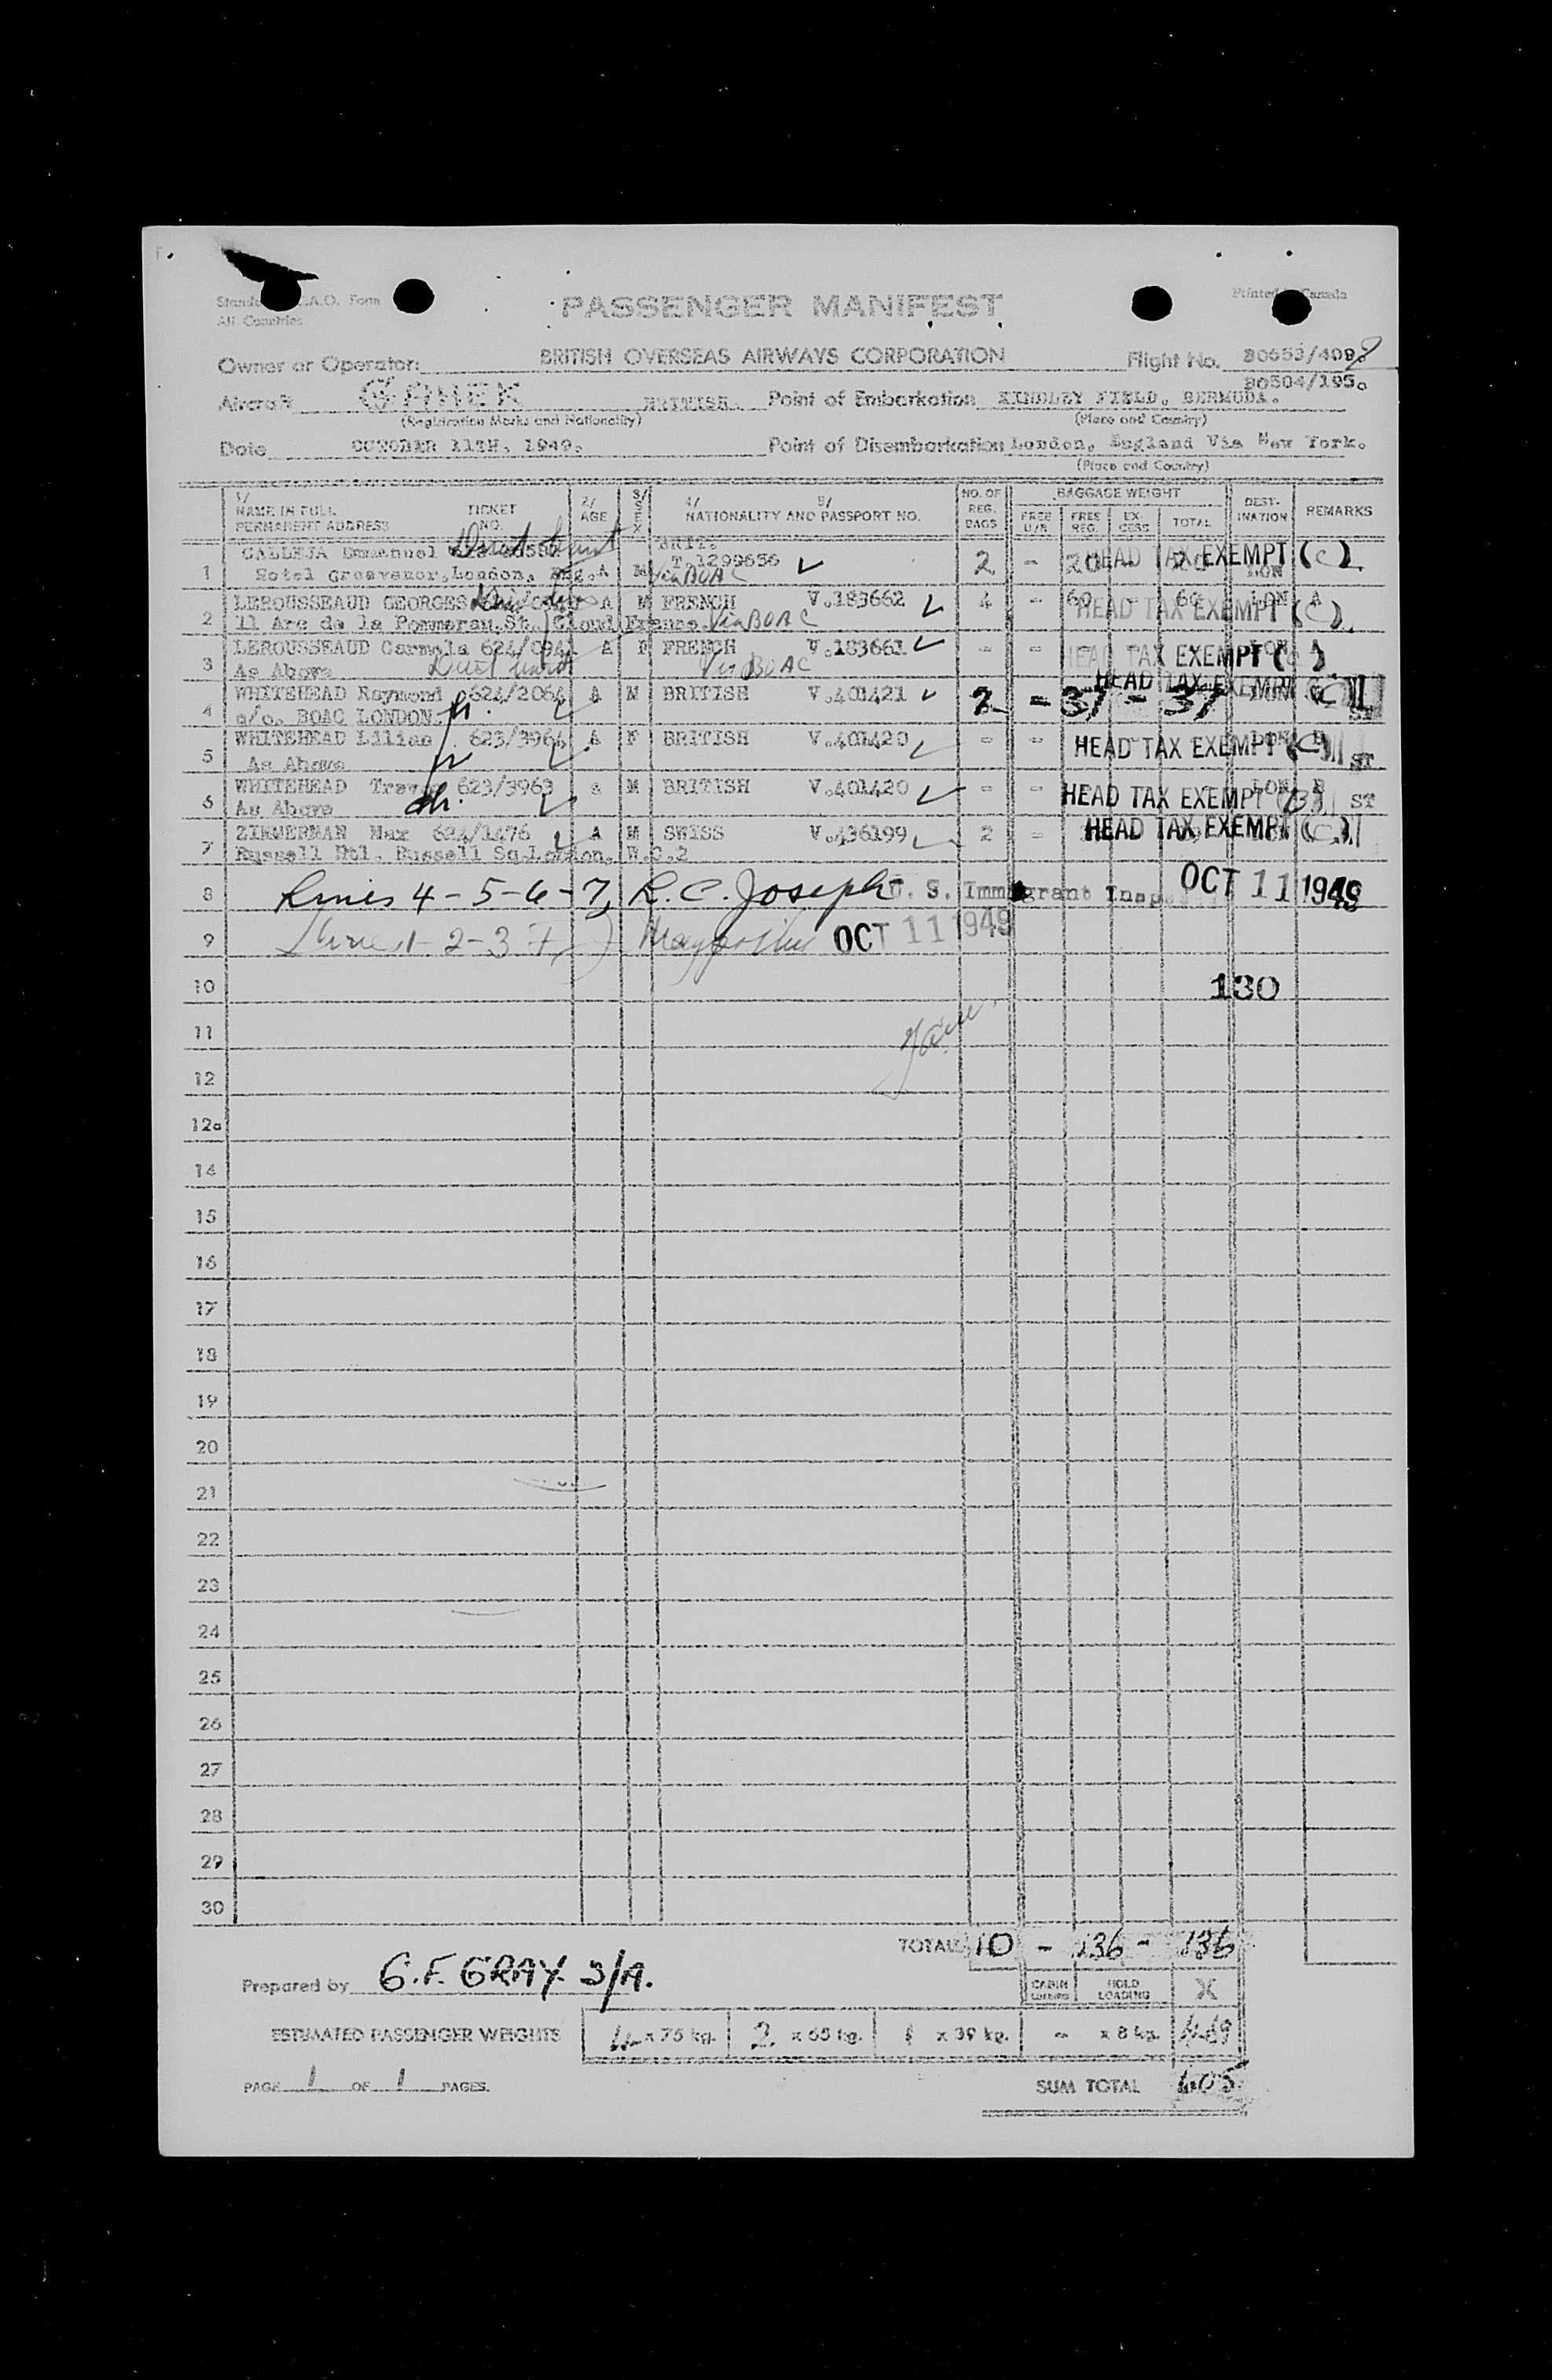 All Countries
PASSENGER MANIFEST
Printed Canada
Owner or Operator: BRITISH OVERSEAS AIRWAYS CORPORATION Flight No. BO653/409
BO504/195.
Aircraft G AHEK BRITISH. Point of Embarkation KINDLEY FIELD, BERMUDA.
(Registration Marks and Nationality) (Place and Country)
Date OCTOBER 11TH, 1949. Point of Disembarkation London, England Via New York.
(Place and Country)
1/ NAME IN FULL PERMANENT ADDRESS TICKET NO. 2/ AGE 3/ SEX 4/ 5/ NATIONALITY AND PASSPORT NO. NO. OF REG. BAGS BAGGAGE WEIGHT FREE U/A FREE REG. EX-CESS TOTAL DEST-INATION REMARKS
1 CALLEJA Emmanuel BRIT. T.1299656 2 - 20 HEAD TAX EXEMPT (C)
Hotel Grosvenor, London, Eng. A M Via BOAC LON
2 LEROUSSEAUD GEORGES A M FRENCH V.183662 4 - 60 - 60 LON A HEAD TAX EXEMPT (C)
St. Cloud France Via BOAC
3 LEROUSSEAUD Carmela 624/0941 A F FRENCH V.183661 - - HEAD TAX EXEMPT (C)
As Above Via BOAC
4 WHITEHEAD Raymond 624/2064 A M BRITISH V.401421 2 - 37 - 37 HEAD TAX EXEMPT (C)
c/o. BOAC LONDON. ST
5 WHITEHEAD Lilian 623/3964 A F BRITISH V.401420 - - HEAD TAX EXEMPT (C)
As Above ST
6 WHITEHEAD 623/3963 M BRITISH V.401420 - - HEAD TAX EXEMPT (B) ST
As Above
7 ZIMMERMAN Max 624/1476 A M SWISS V.436199 2 - HEAD TAX EXEMPT (C)
Russell Htl. Russell Sq. London, W.C.2
8 Lines 4-5-6-7, R. C. Joseph U. S. Immigrant Insp. OCT 11 1949
9 Line 1-2-3 OCT 11 1949
10 130
11
12
12a
14
15
16
17
18
19
20
21
22
23
24
25
26
27
28
29
30
TOTAL 10 - 136 - 136
Prepared by G.F. GRAY S/A. CABIN LOADING HOLD LOADING X
ESTIMATED PASSENGER WEIGHTS 4 x 75 kg. 2 x 65 kg. 1 x 39 kg. - x 8 kg. 469
PAGE 1 OF 1 PAGES. SUM TOTAL 605